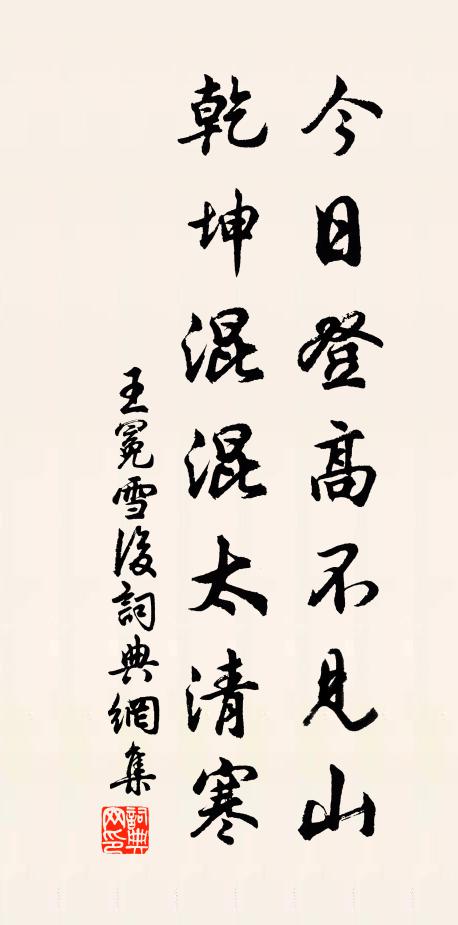 今日登高不見山
乾坤混混太清寒
王冕雪後詞典網集
詞典网印